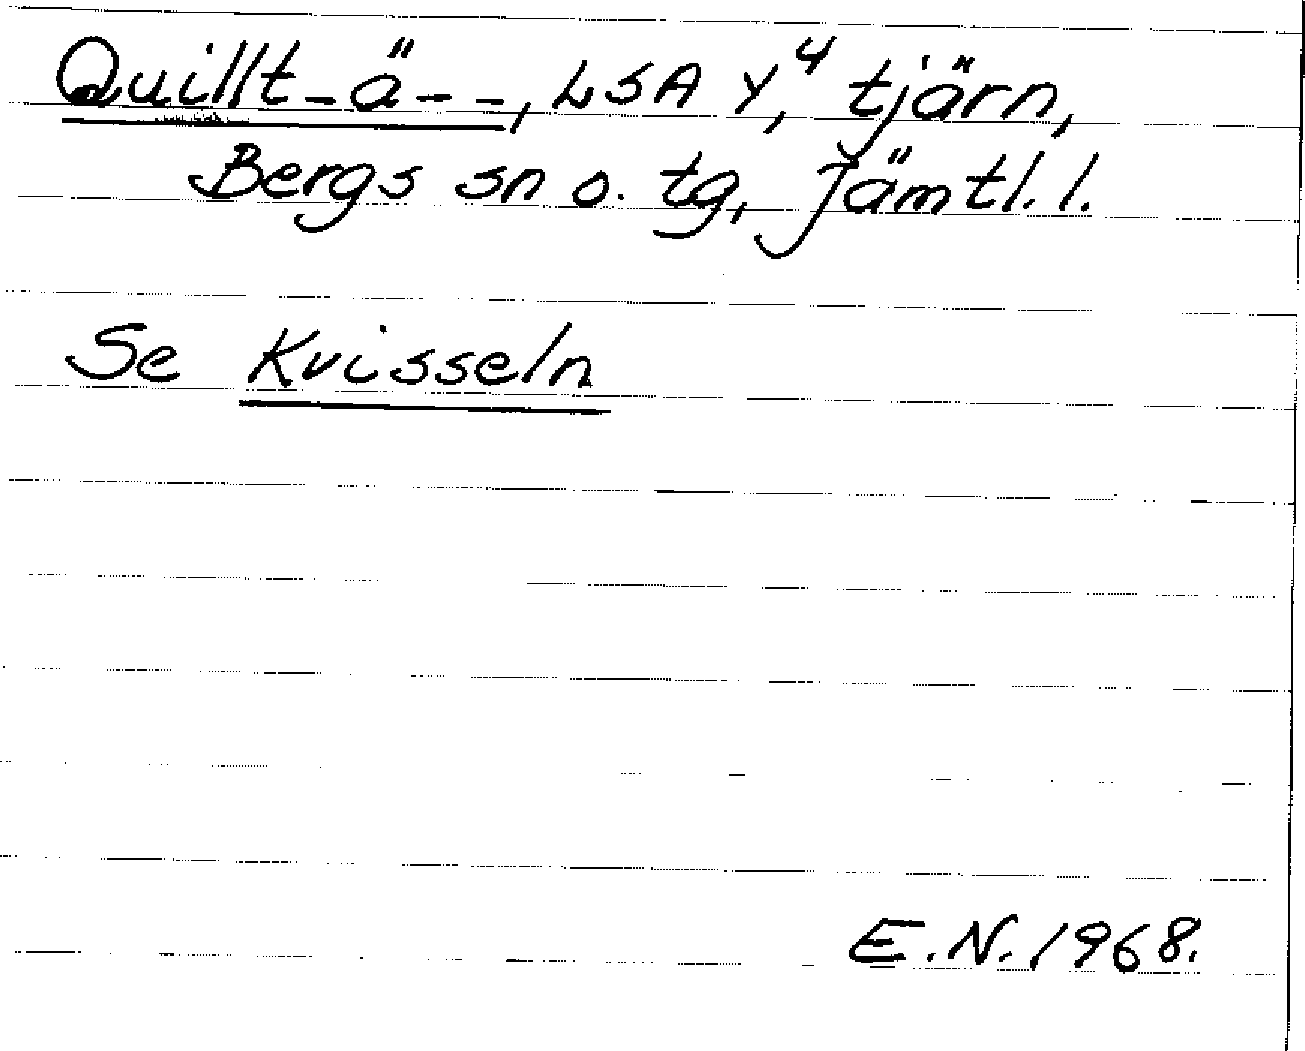 Quillt-ä--, LSA Y⁴, tjärn,
Bergs sn o. tg, Jämtl. l.
Se Kvisseln
E.N. 1968.